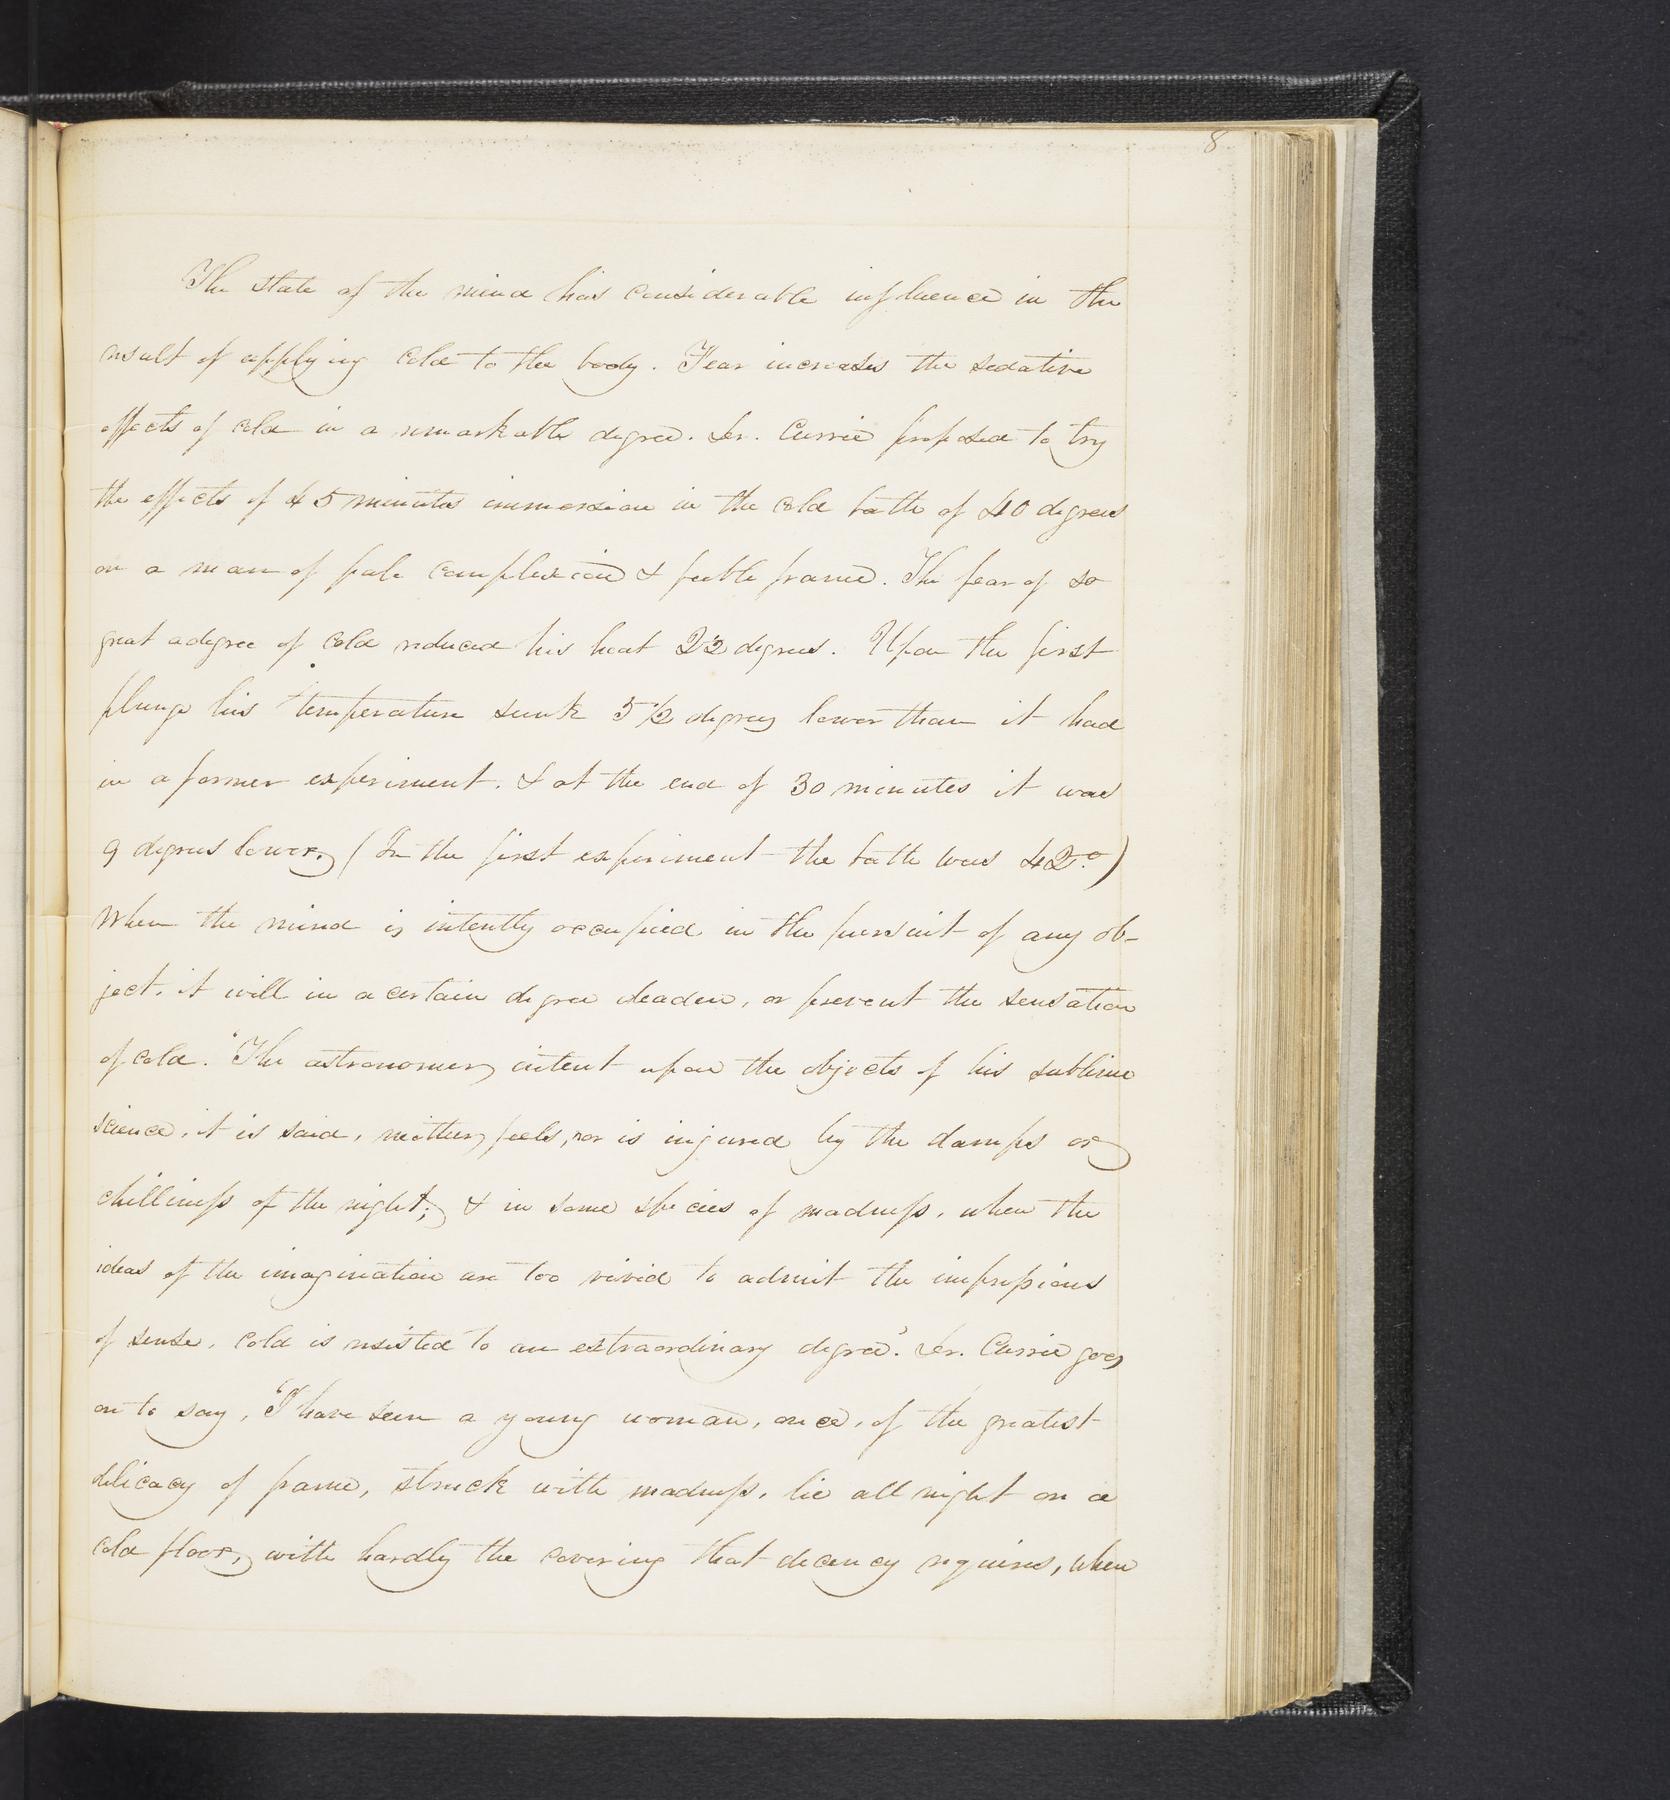 8
The state of the mind has considerable influence in the
result of applying cold to the body. Fear increases the sedative
effects of cold in a remarkable degree. Dr. Currie proposed to try
the effects of 45 minutes immersion in the cold bath of 40 degrees
on a man of pale complexion & feeble frame. The fear of so
great a degree of cold reduced his heat 2½ degrees. Upon the first
plunge his temperature sunk 5½ degrees lower than it had
in a former experiment. & at the end of 30 minutes it was
9 degrees lower. (In the first experiment the bath was 42.°)
When the mind is intently occupied in the pursuit of any ob-
ject, it will in a certain degree deaden, or prevent the sensation
of cold. "The astronomer, intent upon the objects of his sublime
science, it is said, neither feels, nor is injured by the damps or
chilliness of the night; & in some species of madness, when the
ideas of the imagination are too vivid to admit the impressions
of sense, cold is resisted to an extraordinary degree". Dr. Currie goes
on to say, "I have seen a young woman, once, of the greatest
delicacy of frame, struck with madness, lie all night on a
cold floor, with hardly the covering that decency requires, when